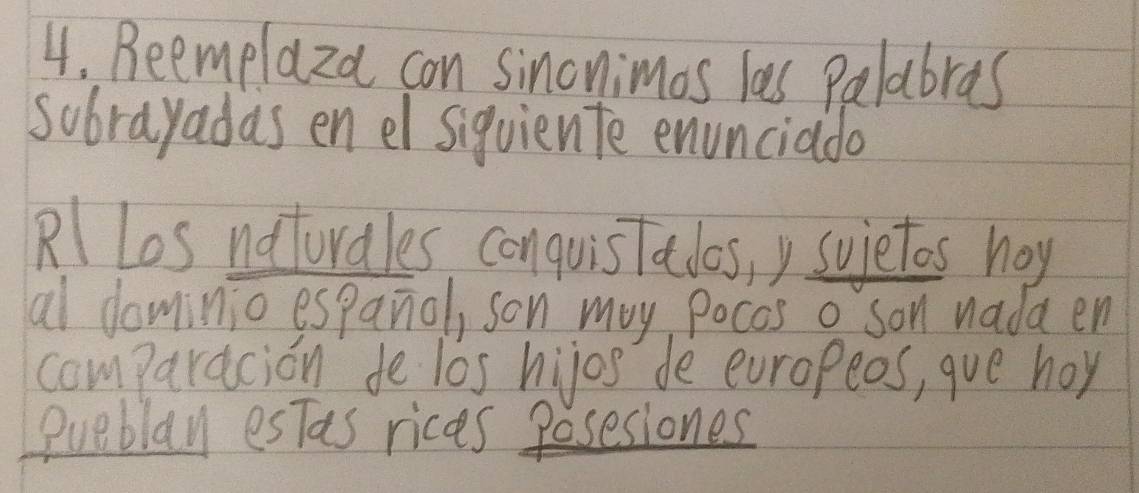 4. Reemplaza con sinonimos las Palabras
subrayadas en el siguiente enunciado
R/ Los naturales conquistados, y sujetos hoy
al dominio español, son muy pocos o son nada en
comparación de los hijos de europeos, que hoy
pueblan estas ricas posesiones